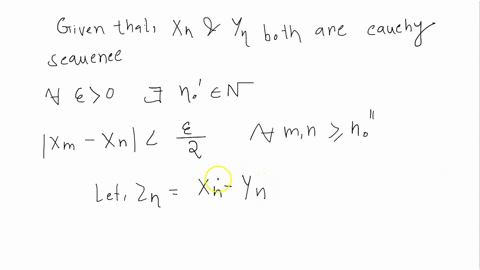 Given that, Xn & Yn both are cauchy
sequence
∀ ε>0 ∃ n₀' ∈ N
|Xm - Xn| < ε/2 ∀ m,n ≥ n₀''
Let, Zn = Xn - Yn